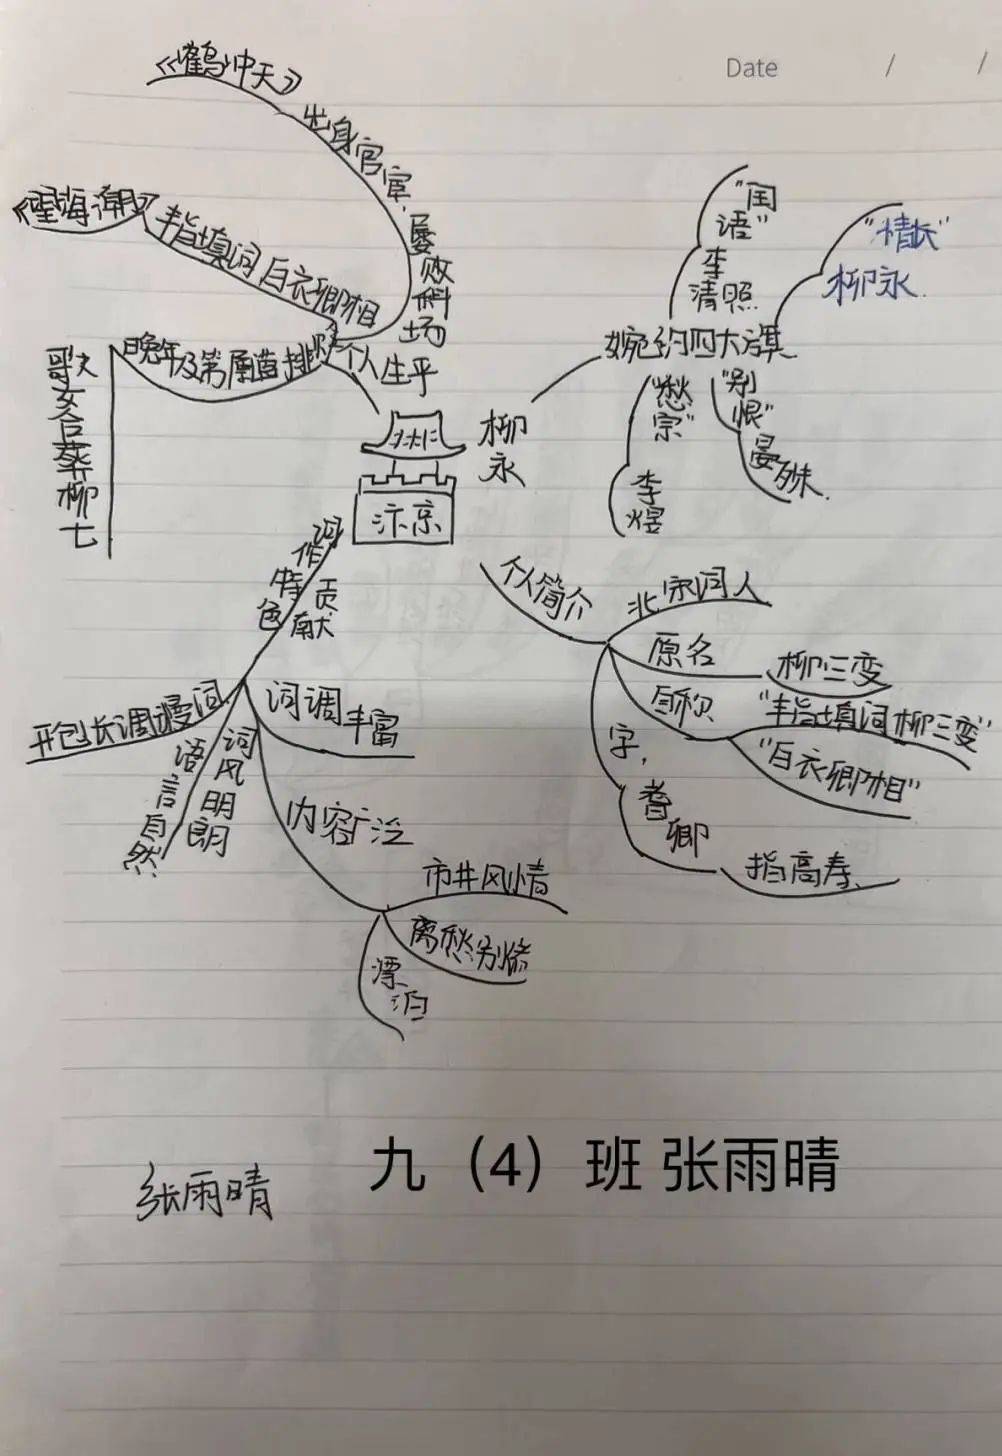 Date / /
《鹤冲天》
出身官宦,屡败科场
《望海潮》
奉旨填词 白衣卿相
晚年及第 屡遭排
歌女合葬柳七
个人生平
汴京
柳永
婉约四大旗
"闺语"
李清照
"情长"
柳永
"愁宗"
李煜
"别恨"
晏殊
词作特色
贡献
开创长调慢词
语言自然
词风明朗
词调丰富
内容广泛
市井风情
离愁别绪
漂泊
个人简介
北宋词人
原名
柳三变
自称
"奉旨填词柳三变"
"白衣卿相"
字,耆卿
指高寿
张雨晴
九(4)班 张雨晴